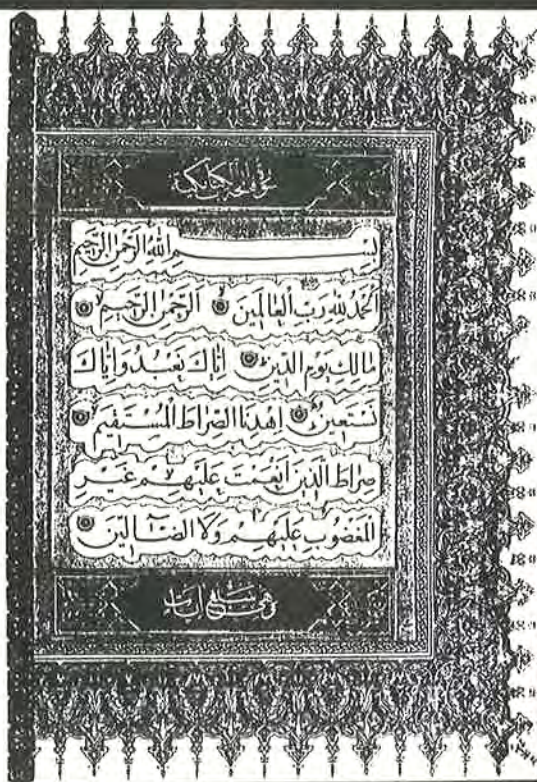 فاتحة الكتاب مكية
بسم الله الرحمن الرحيم
الحمد لله رب العالمين الرحمن الرحيم
مالك يوم الدين اياك نعبد واياك
نستعين اهدنا الصراط المستقيم
صراط الذين انعمت عليهم غير
المغضوب عليهم ولا الضآلين
وهي سبع آيات